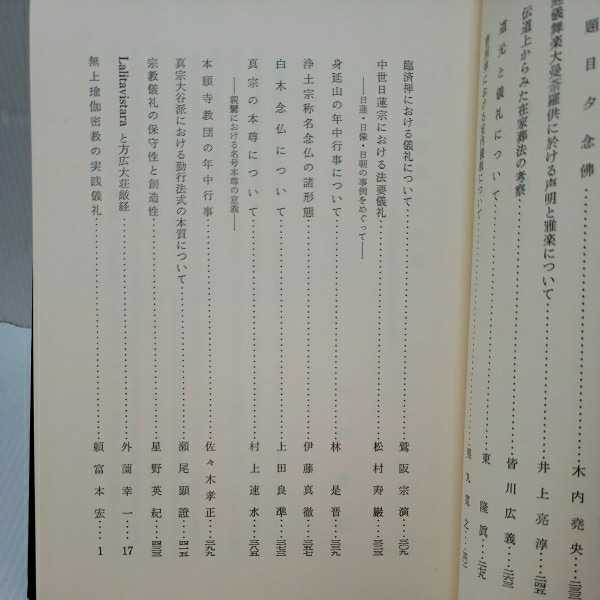 題目夕念佛……木内堯央
儀舞楽大曼荼羅供に於ける声明と雅楽について……井上亮淳……二四五
伝道上からみた在家葬法の考察……皆川広義……二六三
道元と儀礼について……東隆眞……二七九
臨済禅における儀礼について……鷲阪宗演……三〇九
中世日蓮宗における法要儀礼……松村寿巌……三二三
――日蓮・日像・日朝の事例をめぐって――
身延山の年中行事について……林是晋……三三九
浄土宗称名念仏の諸形態……伊藤真徹……三五七
白木念仏について……上田良準……三七三
真宗の本尊について……村上速水……三八五
――親鸞における名号本尊の意義――
本願寺教団の年中行事……佐々木孝正……三九九
真宗大谷派における勤行法式の本質について……瀬尾顕證……四一五
宗教儀礼の保守性と創造性……星野英紀……四三三
Lalitavistaraと方広大荘厳経……外薗幸一……17
無上瑜伽密教の実践儀礼……頼富本宏……1